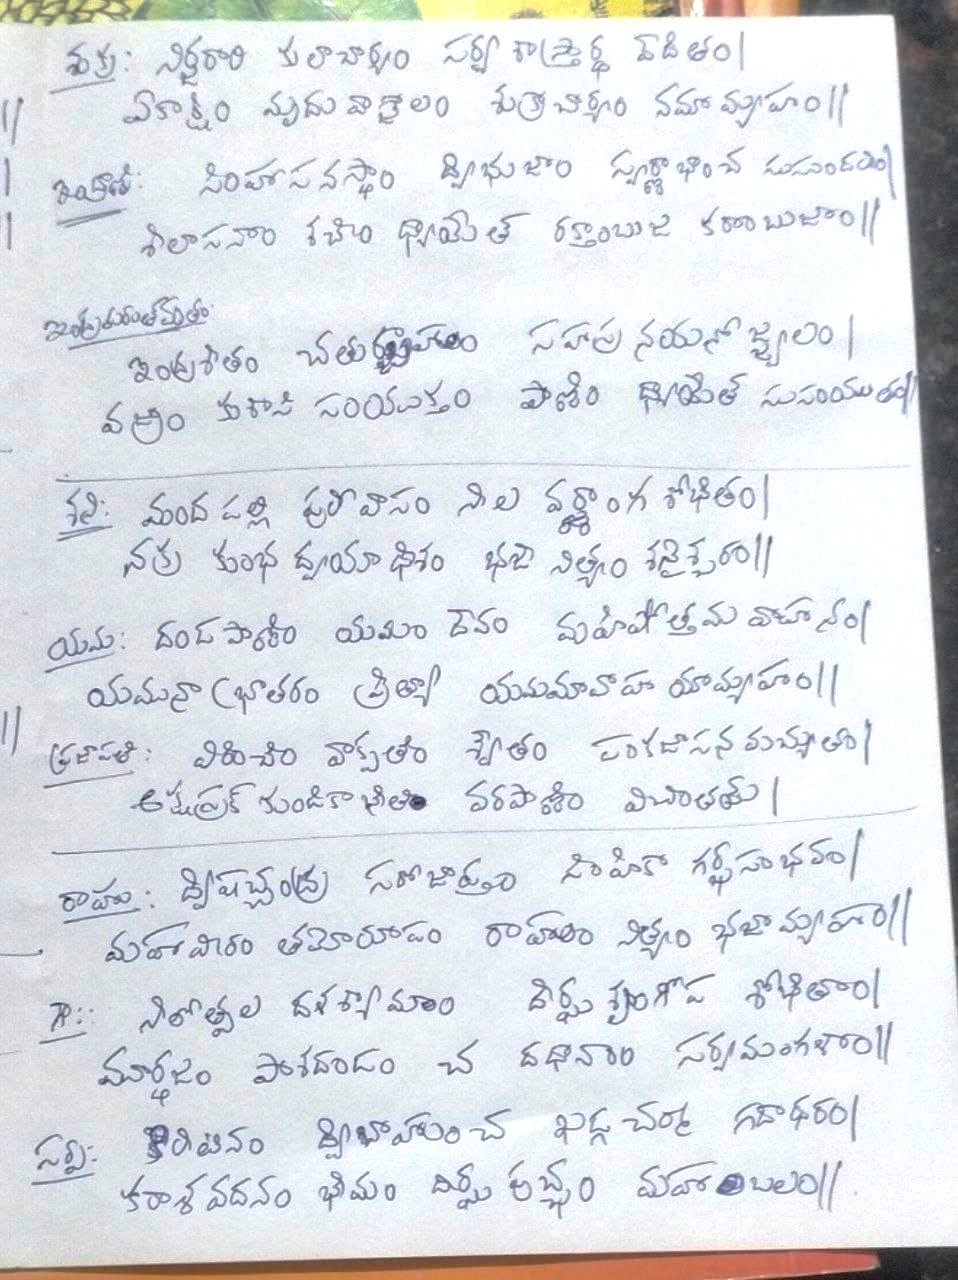 శుక్ర: నిర్జరారి కులాచార్యం సర్వ శాస్త్రార్థ కోవిదం|
ఏకాక్షం మృదు వాగ్జాలం శుక్రాచార్యం నమామ్యహం||
ఇంద్రాణి: సింహాసనస్థాం ద్విభుజాం స్వర్ణాభాంచ సుసుందరీం|
శిలాసనాం శచీం ధ్యాయేత్ రక్తాంబుజ కరాంబుజాం||
ఇంద్రమరుత్వంతం:
ఇంద్రశీతం చతుర్బాహుం సహస్ర నయనోజ్జ్వలం|
వజ్రాం కుశాసి సంయుక్తం పాణిం ధ్యాయేత్ సుసంయుతం||
శని: మందపల్లి పురీవాసం నీల వర్ణాంగ శోభితం|
నక్ర కుంభ ద్వయాధీశం భజే నిత్యం శనైశ్చరం||
యమ: దండపాణిం యమం దేవం మహిషోత్తమ వాహనం|
యమునా భ్రాతరం ప్రీత్యా యమమావాహ యామ్యహం||
ప్రజాపతి: విరించిం వాక్పతిం శ్వేతం పంకజాసన మచ్యుతం|
అక్షస్రక్ కుండికాభీతిం వరపాణిం విచింతయే|
రాహు: ద్విషచ్చంద్ర సరోజాప్తం సింహికా గర్భసంభవం|
మహావీరం తమోరూపం రాహుం నిత్యం భజామ్యహం||
గౌ: నీలోత్పల దళశ్యామాం దీర్ఘ శృంగోప శోభితాం|
మూర్థజం పాశదండం చ దధానాం సర్వమంగళాం||
సర్ప: కిరీటినం ద్విబాహుంచ ఖడ్గ చర్మ గదాధరం|
కరాళవదనం భీమం దీర్ఘ పుచ్ఛం మహాబలం||